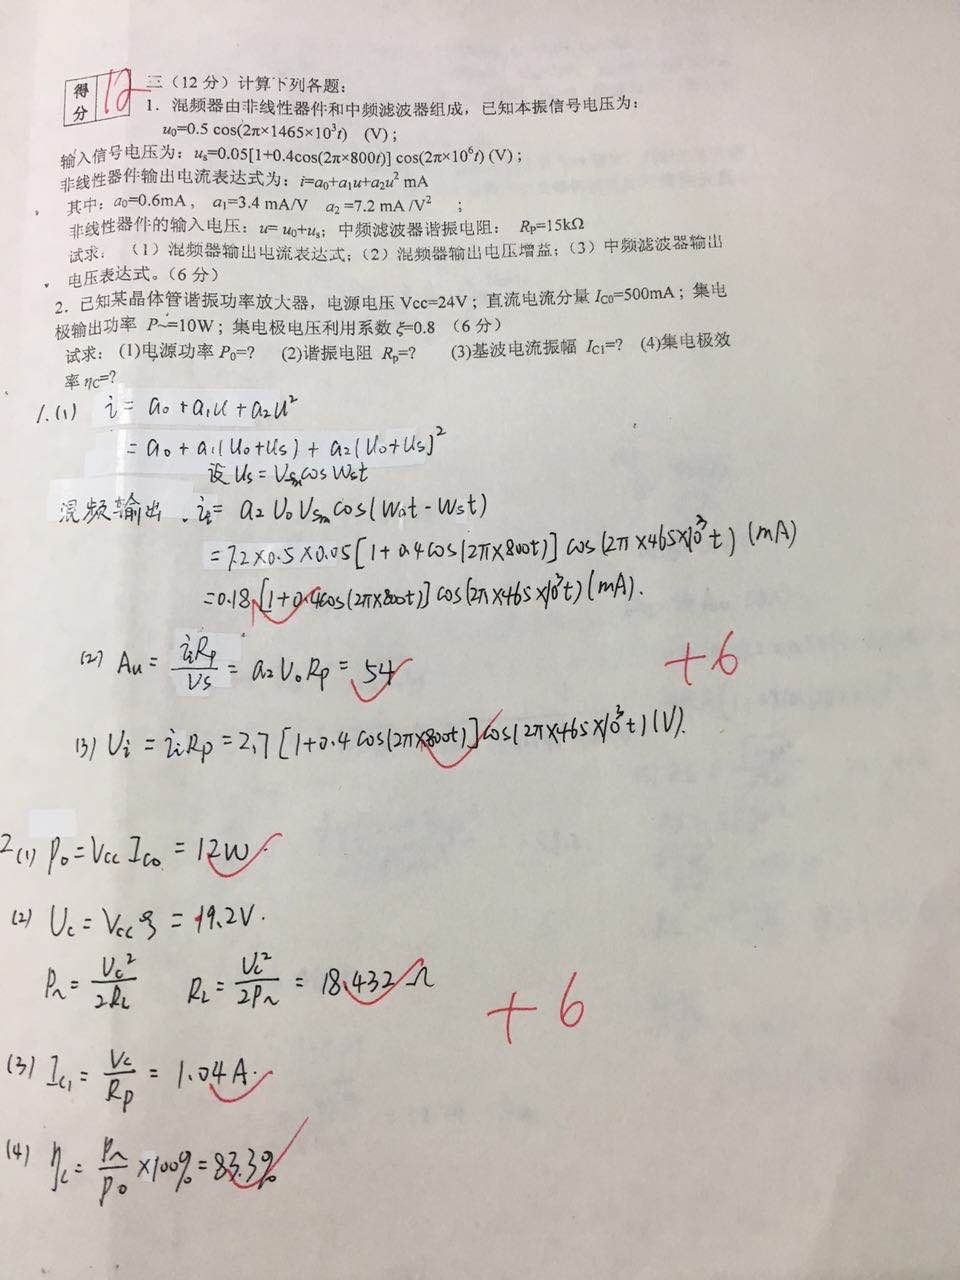 得分 12
三（12 分）计算下列各题：
1．混频器由非线性器件和中频滤波器组成，已知本振信号电压为：
u₀=0.5 cos(2π×1465×10³t) (V)；
输入信号电压为：uₛ=0.05[1+0.4cos(2π×800t)] cos(2π×10⁶t) (V)；
非线性器件输出电流表达式为：i=a₀+a₁u+a₂u² mA
其中：a₀=0.6mA， a₁=3.4 mA/V a₂=7.2 mA/V² ；
非线性器件的输入电压：u= u₀+uₛ；中频滤波器谐振电阻： Rₚ=15kΩ
试求：（1）混频器输出电流表达式；（2）混频器输出电压增益；（3）中频滤波器输出
电压表达式。（6 分）
2．已知某晶体管谐振功率放大器，电源电压 Vcc=24V；直流电流分量 I_C0=500mA；集电
极输出功率 P~=10W；集电极电压利用系数 ξ=0.8 （6 分）
试求：(1)电源功率 P₀=? (2)谐振电阻 Rₚ=? (3)基波电流振幅 I_C1=? (4)集电极效
率 η_C=?
1.(1) i = a₀ + a₁u + a₂u²
= a₀ + a₁(u₀+uₛ) + a₂(u₀+uₛ)²
设 uₛ = Vₛₘ cos Wₛt
混频输出 iᵢ = a₂ U₀ Vₛₘ cos(W₀t - Wₛt)
= 7.2×0.5×0.05[1+0.4cos(2π×800t)] cos(2π×465×10³t) (mA)
=0.18[1+0.4cos(2π×800t)] cos(2π×465×10³t) (mA).
(2) Au = iᵢRₚ/Vs = a₂U₀Rₚ = 54
+6
(3) Uᵢ = iᵢRₚ = 2.7[1+0.4cos(2π×800t)]cos(2π×465×10³t) (V).
2(1) P₀=Vcc I_C0 = 12W.
(2) Uc = Vcc ξ = 19.2V.
P~ = Uc²/2R_L R_L = Uc²/2P~ = 18.432Ω
+6
(3) I_C1 = Vc/Rₚ = 1.04A.
(4) ηc = P~/P₀ ×100% = 83.3%